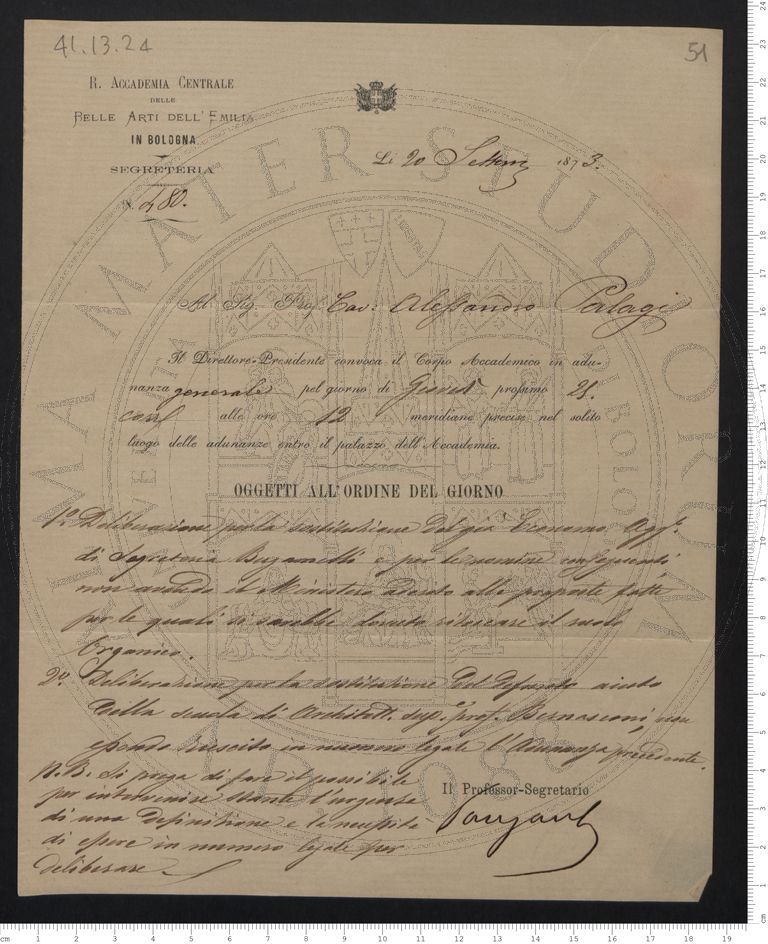 41.13.24
51
R. ACCADEMIA CENTRALE
DELLE
BELLE ARTI DELL'EMILIA
IN BOLOGNA
SEGRETERIA
N. 480.
Li 20 Settem 1873.
Al Sig. Prof. Cav. Alessandro Palagi
Il Direttore-Presidente convoca il Corpo Accademico in adu-
nanza generale pel giorno di Giovedì prossimo 25.
corr alle ore 12 meridiane precise nel solito
luogo delle adunanze entro il palazzo dell'Accademia.
OGGETTI ALL'ORDINE DEL GIORNO
1º Deliberazione per la sostituzione del già Economo, Agg.
di Segreteria e per le nomine conseguenti
non avendo il Ministero aderito alle proposte fatte
per le quali si sarebbe dovuto rilasciare il ruolo
Organico.
2º Deliberazione per la sostituzione del defunto aiuto
della scuola di Architett. sup. prof. Bernasconi, non
essendo riescita in numero legale l'Adunanza precedente.
N.B. Si prega di fare il possibile
per intervenire stante l'urgenza
di una definizione e la necessità
di essere in numero legale per
deliberare.
Il Professor-Segretario
ALMA MATER STUDIORUM
A.D. 1088